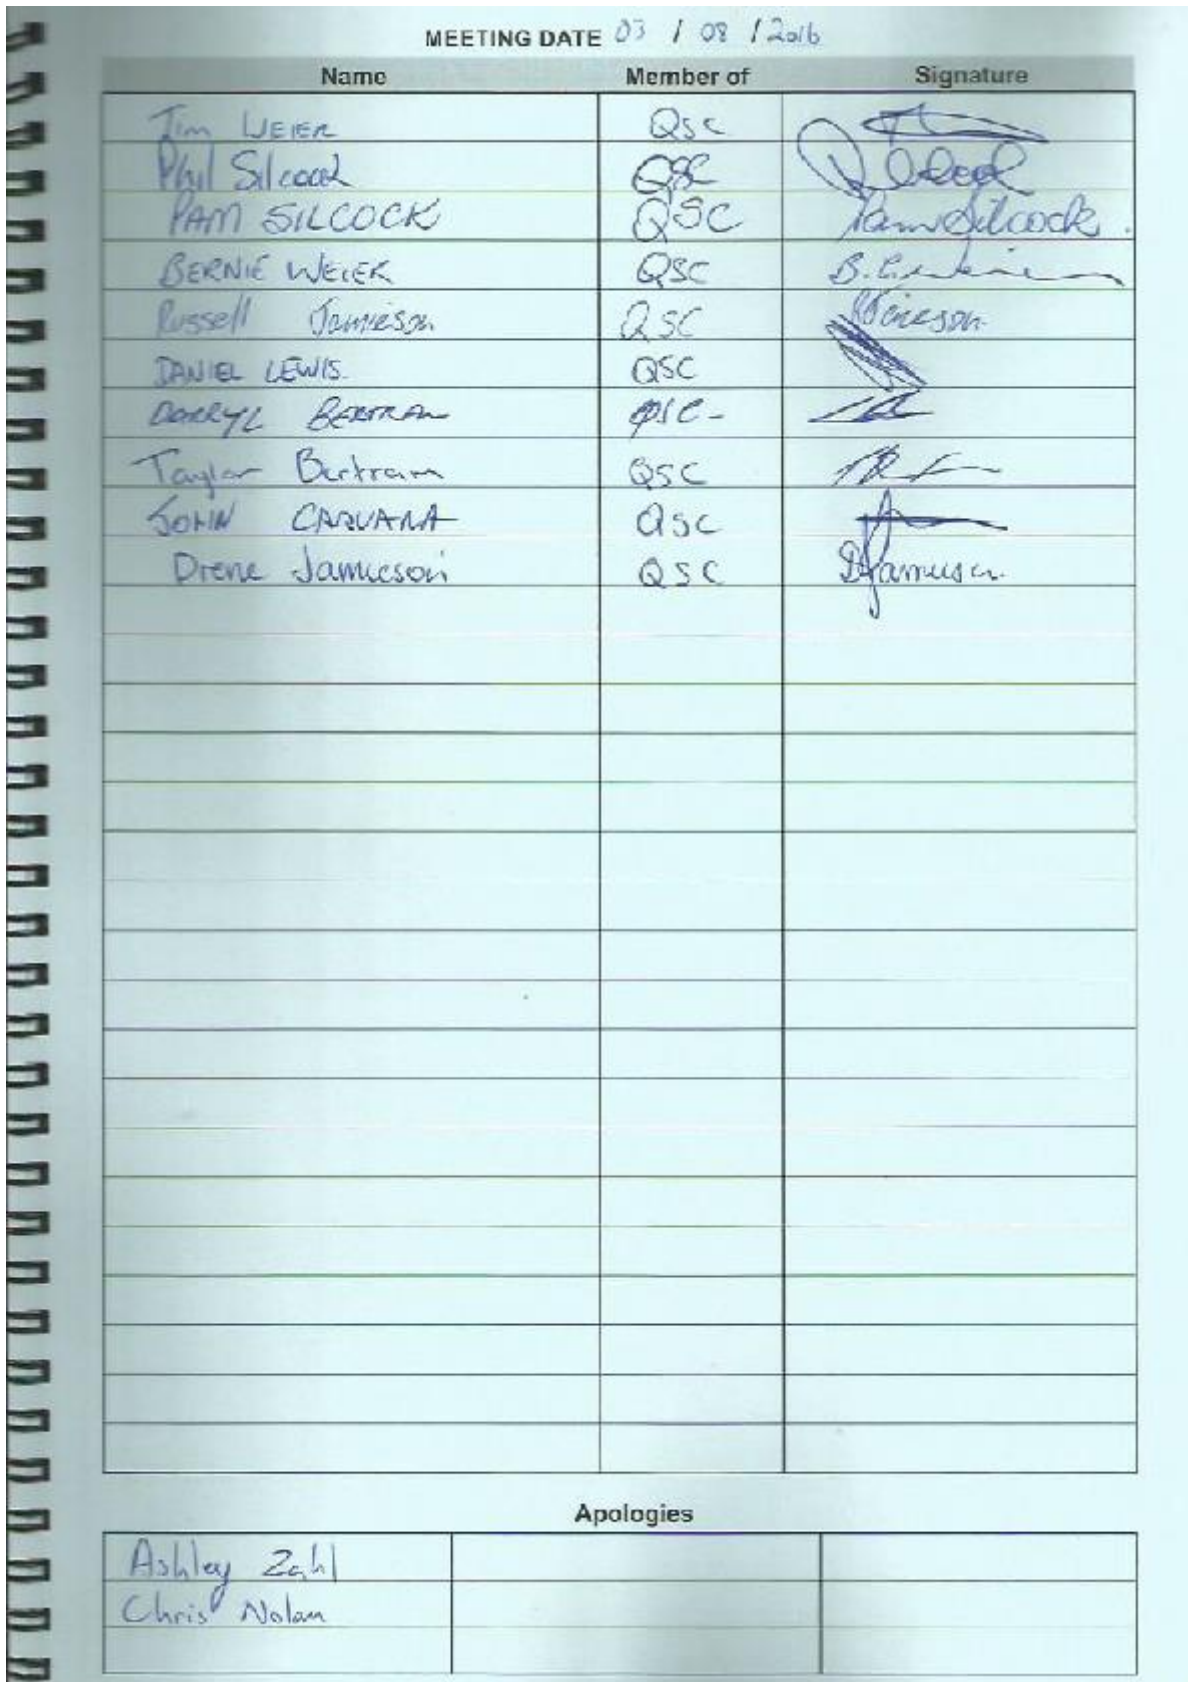 MEETING DATE 03 / 08 / 2016
Name Member of Signature
Jim WEIER QSC
Phil Silcock QSC
PAM SILCOCK QSC Pam Silcock.
BERNIE WEIER QSC
Russell Jamieson QSC
DANIEL LEWIS. QSC
DARRYL BERTRAM QSC-
Taylor Bertram QSC
JOHN CARUANA QSC
Drene Jamieson QSC DJamieson.
Apologies
Ashley Zahl
Chris Nolan